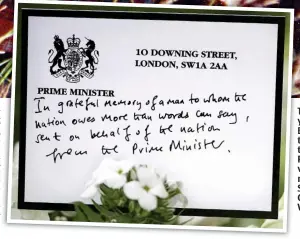 10 DOWNING STREET,
LONDON, SW1A 2AA
PRIME MINISTER
In grateful memory of a man to whom the
nation owes more than words can say,
sent on behalf of the nation
from the Prime Minister.